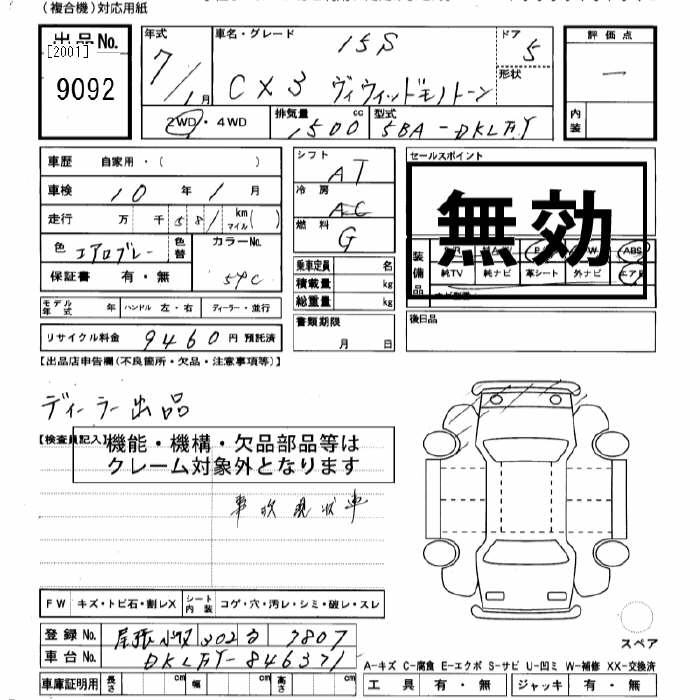 (複合機)対応用紙
出品No.
[2001]
9092
年式 7/1月
車名・グレード 15S
CX3 ヴィヴィッドモノトーン
ドア 5
形状
評価点
内装
2WD・4WD
排気量 1500 cc
型式 5BA-DKLFY
車歴 自家用・( )
車検 10年1月
走行 万 千 581 km マイル( )
色 エアログレー
色替
カラーNo. 54C
保証書 有・無
モデル年式 年 ハンドル 左・右 ディーラー・並行
リサイクル料金 9460円 預託済
シフト AT
冷房 AC
燃料 G
乗車定員 名
積載量 kg
総重量 kg
書類期限
月 日
セールスポイント
無効
装備品
ABS
純TV 純ナビ 革シート 外ナビ エアB
後日品
【出品店申告欄(不良箇所・欠品・注意事項等)】
ディーラー出品
【検査員記入】
機能・機構・欠品部品等は
クレーム対象外となります
事故現状車
FW キズ・トビ石・割レX シート内装 コゲ・穴・汚レ・シミ・破レ・スレ
登録No. 尾張小牧 302 7807
車台No. DKLFY-846371
車庫証明用 長さ cm 幅 cm 高さ cm
スペア
A-キズ C-腐食 E-エクボ S-サビ U-凹ミ W-補修 XX-交換済
工具 有・無 ジャッキ 有・無